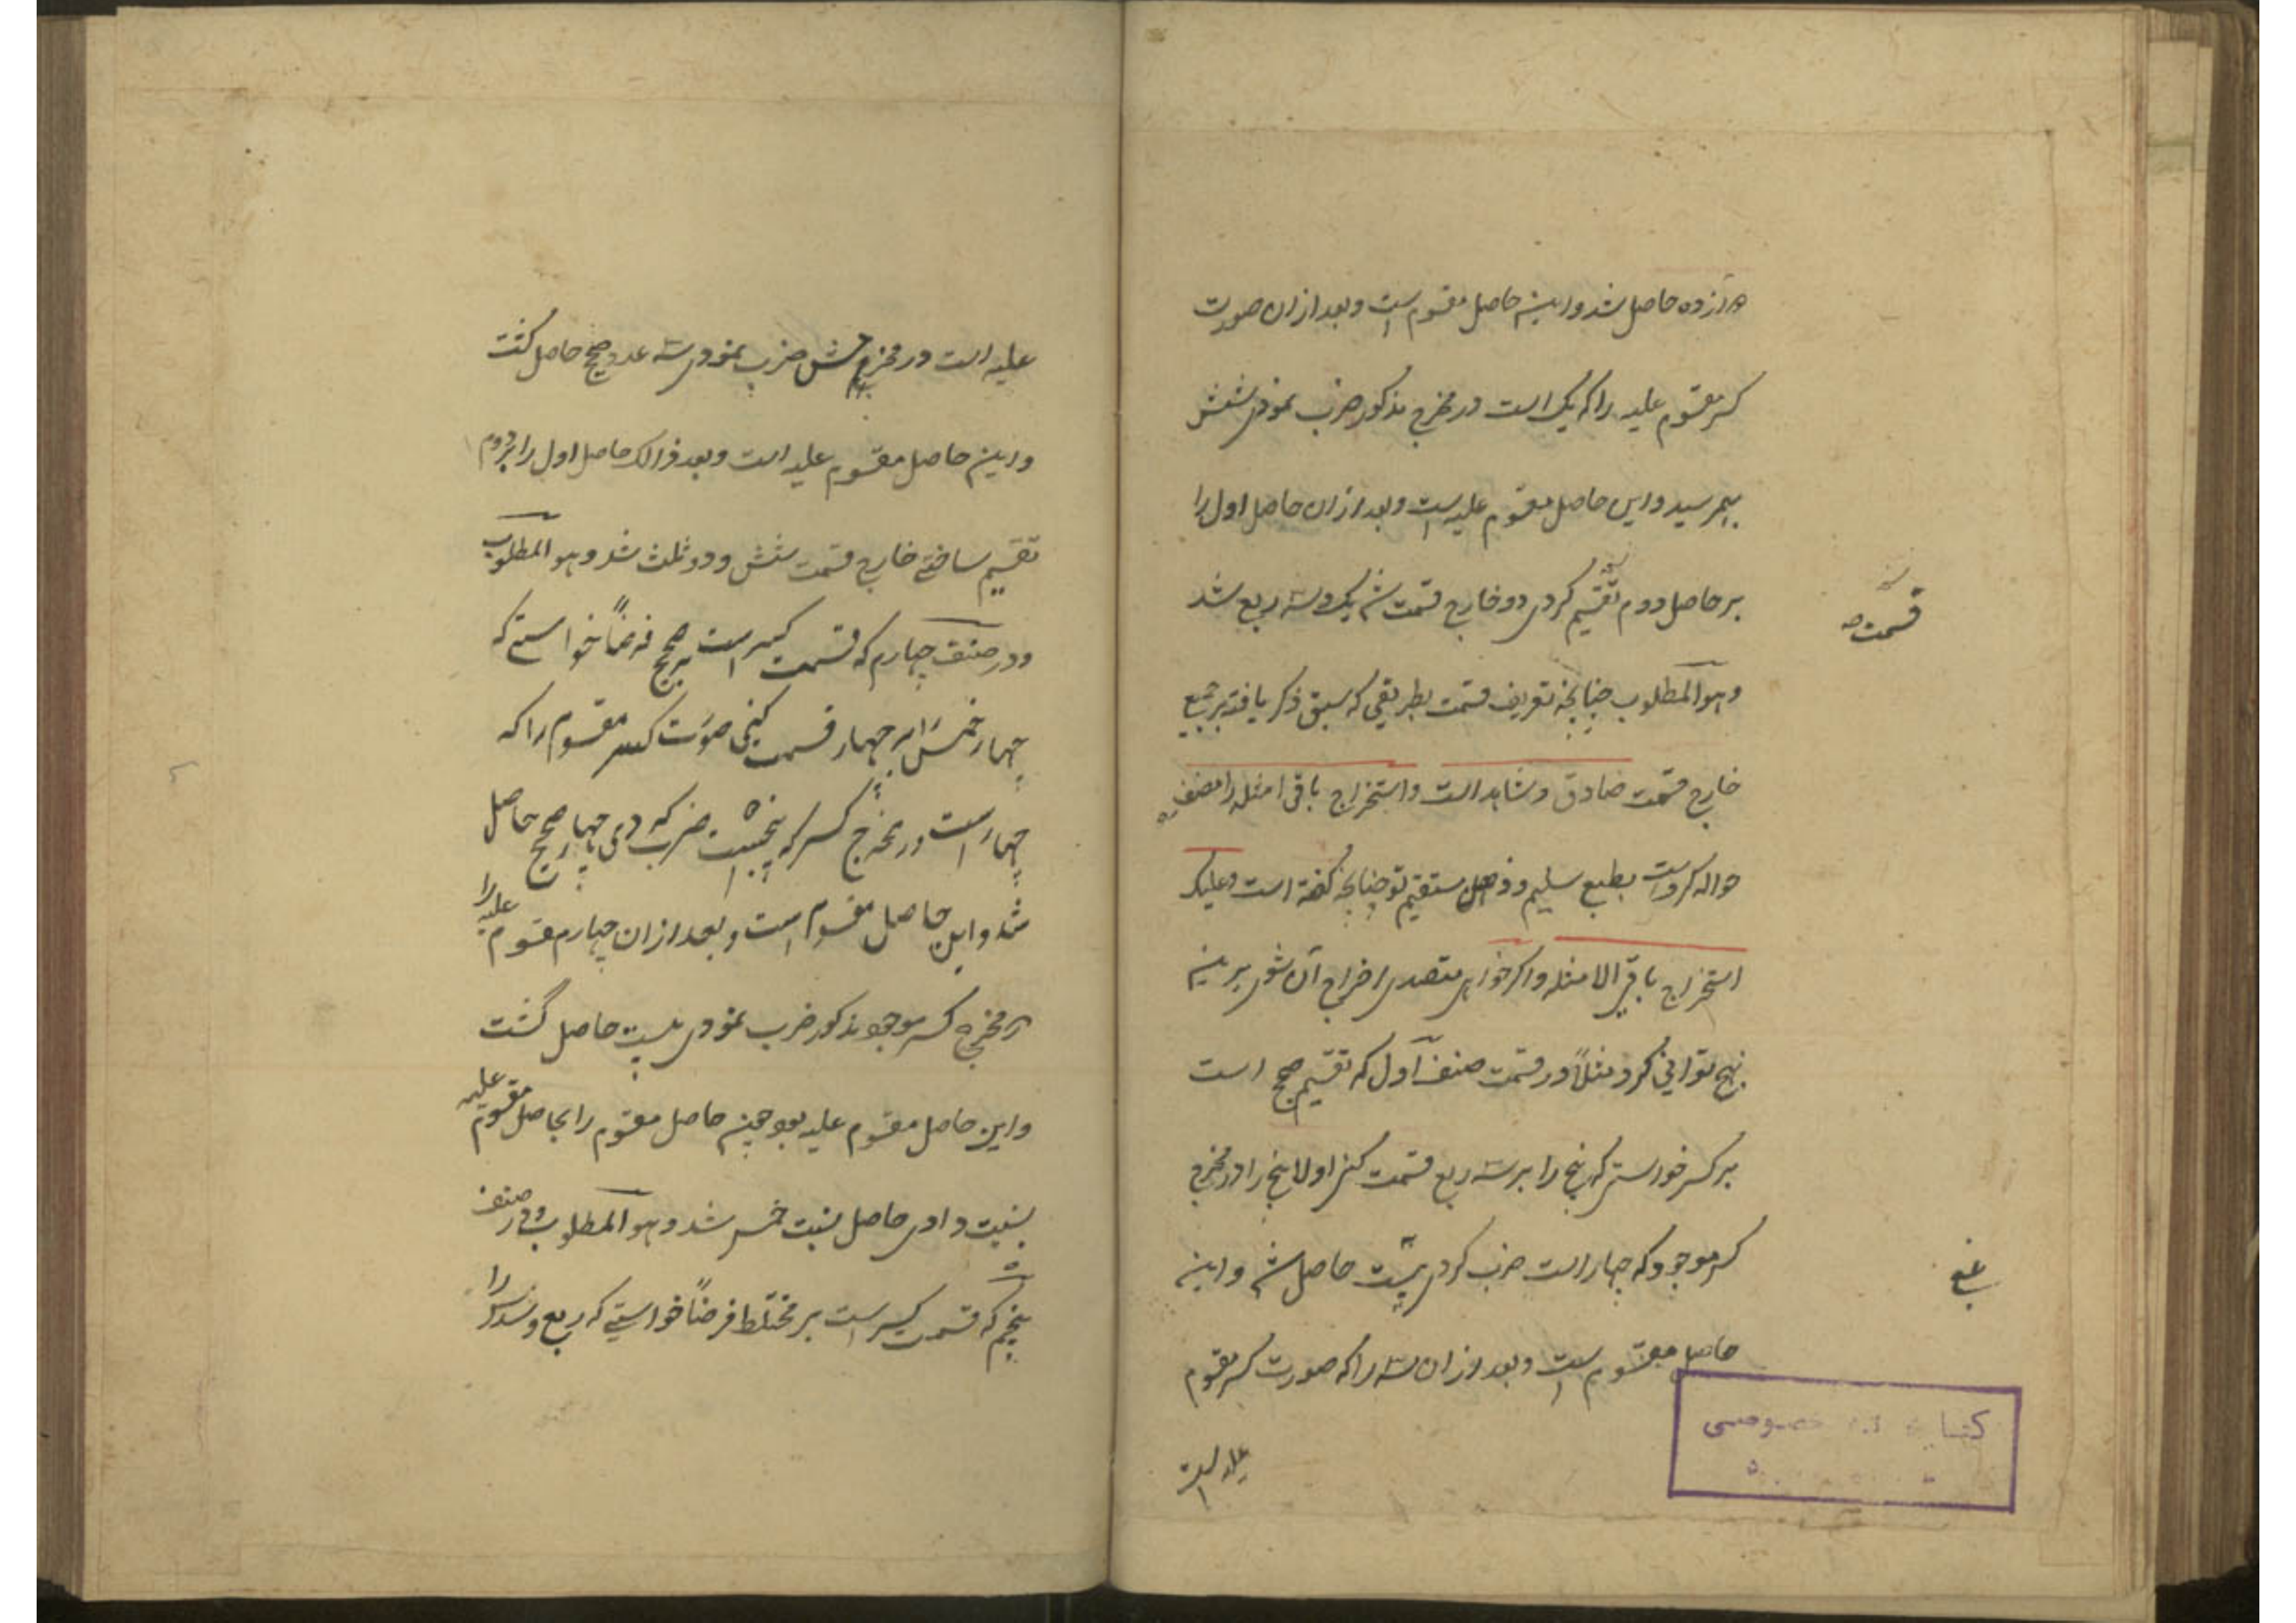 حاصل شد و این حاصل مقسوم است و بعد از ان صورت
کسر مقسوم علیه را که یک است در مخرج مذکور ضرب نمودی شش
بهم رسید و این حاصل مقسوم علیه است و بعد از ان حاصل اول را
بر حاصل دوم تقسیم کردی دو خارج قسمت شد یک و سه ربع شد
قسمت
و هو المطلوب چنانچه تعریف قسمت بطریقی که سبق ذکر یافته بر جمیع
خارج قسمت صادق و شاهد است و استخراج باقی امثله را مصنف
حواله کرده است بطبع سلیم و ذهن مستقیم تو چنانچه گفته است و علیک
استخراج باقی الامثله و اگر خواهی متصدی اخراج آن شوی برین
نهج توانی کرد مثلاً در قسمت صنف اول که تقسیم صحیح است
بر کسر خواستی که پنج را بر سه ربع قسمت کنی اولا پنج را در مخرج
کسر موجود که چهار است ضرب کردی بیست حاصل شد و این
حاصل مقسوم است و بعد از ان سه را که صورت کسر مقسوم
علیه است
علیه است در مخرج ضرب نمودی سه عدد صحیح حاصل گشت
و این حاصل مقسوم علیه است و بعد ذالک حاصل اول را بر دوم
تقسیم ساختی خارج قسمت شش و دو ثلث شد و هو المطلوب
و در صنف چهارم که قسمت کسر است بر صحیح فرضاً خواستی که
چهار خمس را بر چهار قسمت کنی صورت کسر مقسوم را که
چهار است در مخرج کسر که پنجست ضرب کردی چهار صحیح حاصل
شد و این حاصل مقسوم است و بعد از ان چهارم مقسوم علیه را
در مخرج کسر موجود مذکور ضرب نمودی بیست حاصل گشت
و این حاصل مقسوم علیه بود همین حاصل مقسوم را بحاصل مقسوم علیه
نسبت دادی حاصل نسبت خمس شد و هو المطلوب و در صنف
پنجم که قسمت کسر است بر مختلط فرضاً خواستی که ربع و سدس را